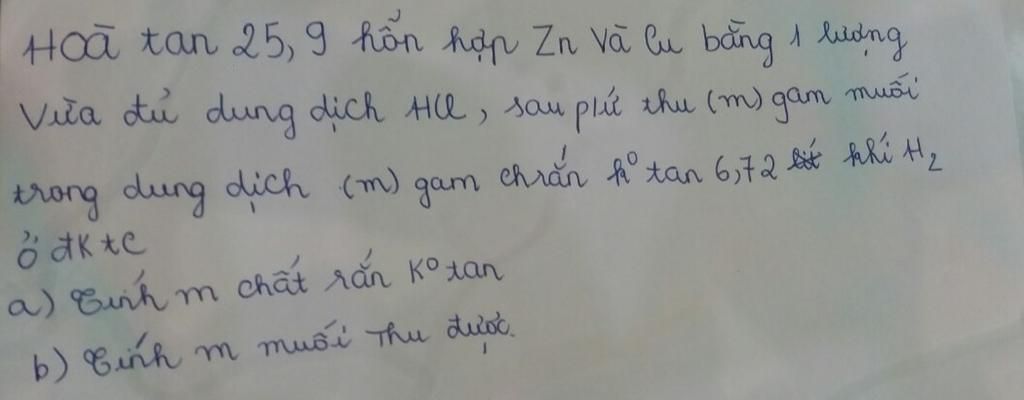 Hoà tan 25,9 hỗn hợp Zn Và Cu bằng 1 lượng
Vừa đủ dung dịch HCl, sau pứ thu (m) gam muối
trong dung dịch (m) gam chrắn k⁰ tan 6,72 khí H₂
Ở đktc
a) Tính m chất rắn K⁰ tan
b) Tính m muối Thu được.